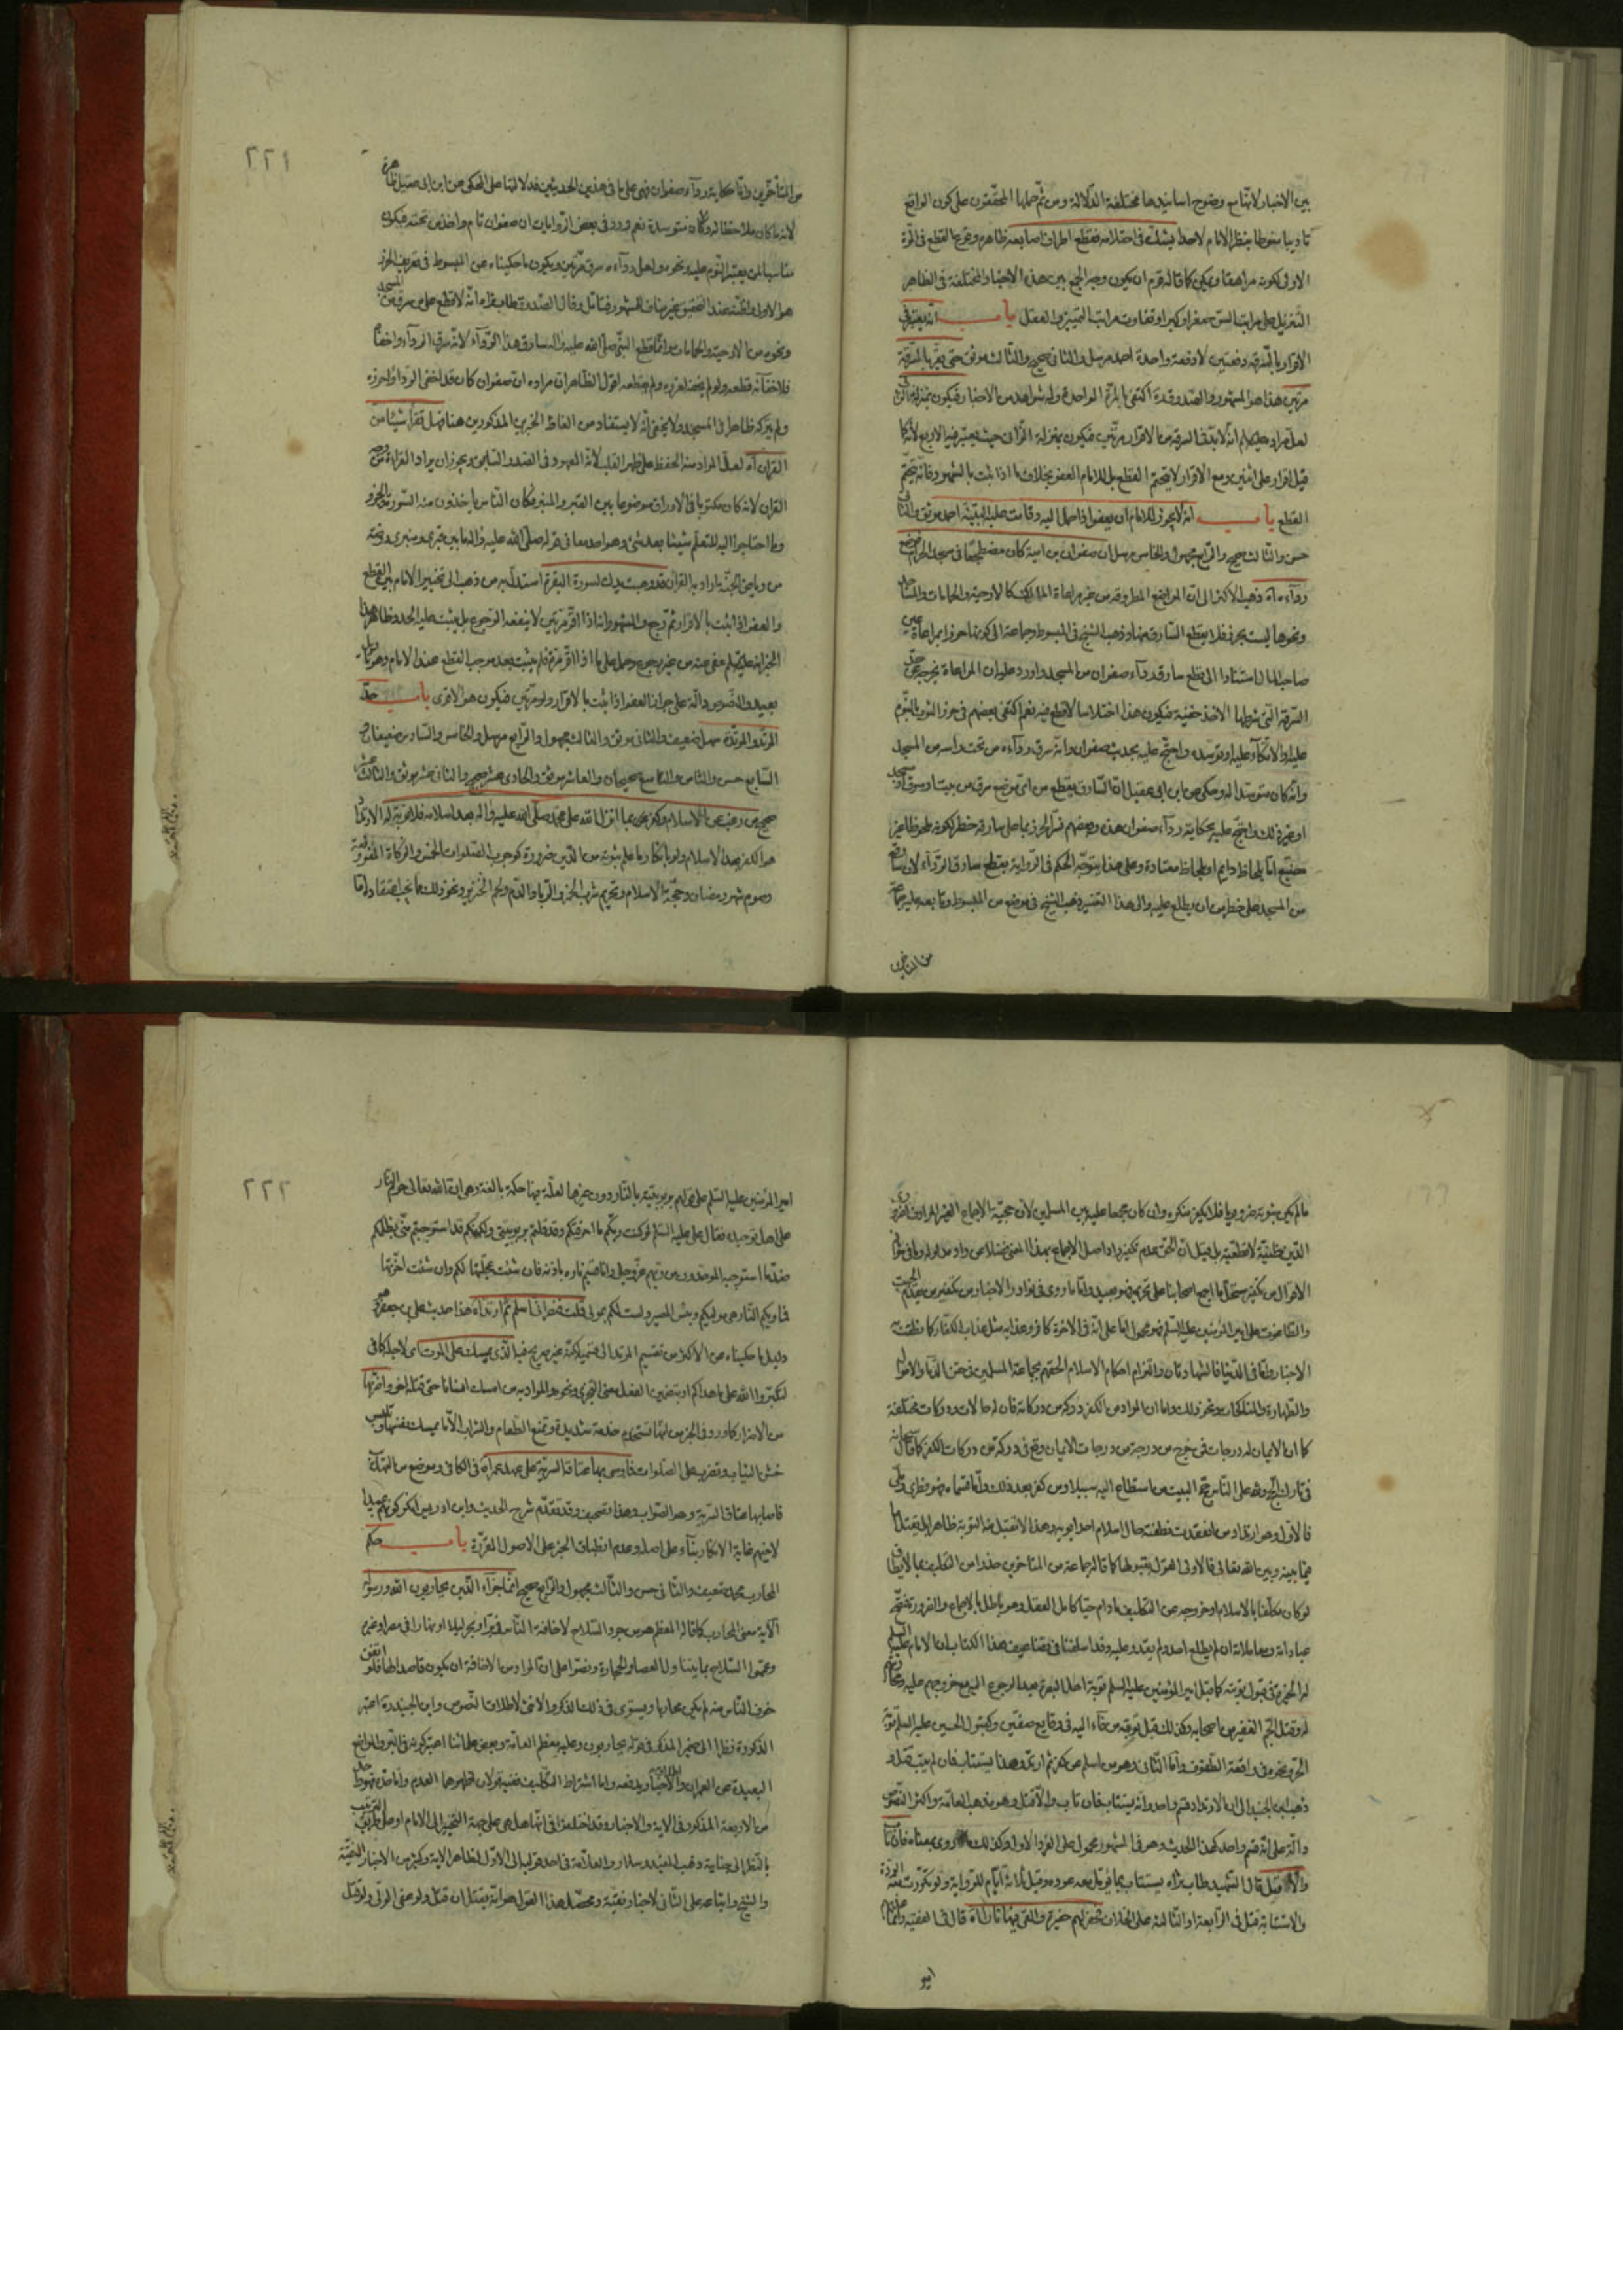 بين الاخبار لانها مع وضوح اسانيدها مختلفة الدلالة ومن ثم حملها المحققون على كون الواقع
تاديبا منوطا بنظر الامام لاحد يشك في احتلامه فقطع اطراف اصابعه ظاهره وقوع القطع في المرة
الاولى لكونه مراهقا ويمكن كما قاله قوم ان يكون وجه الجمع بين هذه الاخبار المختلفة في الظاهر
التنزيل على مراتب السن صغرا وكبرا وتفاوت مراتب التمييز والعقل باب انه يعتبر في
الاقرار بالسرقة دفعتين لا دفعة واحدة احمد مرسل والثاني صحيح والثالث موثق حتى يقر بالسرقة
مرتين هذا هو المشهور والصدوق ره اكتفى بالمرة الواحدة وله شواهد من الاخبار فيكون
لعل مراده عليه السلم انه لابد في السرقة من الاقرار مرتين فيكون بمنزلة الزاني حيث يعتبر فيه الاربع لانها
قيل اقرار على اثنين ومع الاقرار لا يتحتم القطع بل للامام العفو بخلاف ما اذا ثبت بالشهود فانه يتحتم
القطع باب انه لا يجوز للامام ان يعفو اذا حمل اليه وقامت عليه البينة احمد موثق والثاني
حسن والثالث صحيح والرابع مجهول والخامس مرسل ان صفوان بن امية كان مضطجعا في مسجد الحرام فوضع
رداءه اه ذهب الاكثر الى ان المواضع المطروقة من غير مراعاة المالك كالارحية والحمامات والمساجد
ونحوها ليست بحرز فلا يقطع السارق منها وذهب الشيخ في المبسوط وجماعة الى كونها حرزا بمراعاة عين
صاحب المال استنادا الى قطع سارق رداء صفوان من المسجد واورد عليه ان المراعاة يخرجه عن حد
السرقة التي شرطها الاخذ خفية فيكون هذا اختلاسا لا قطع فيه نعم اكتفى بعضهم في حرز الثوب بالنوم
عليه او الاتكاء عليه او توسده واحتج عليه بحديث صفوان وانه سرق رداءه من تحت راسه من المسجد
وانه كان متوسدا له وحكى عن ابن ابي عقيل ان السارق يقطع من اي موضع سرق من بيت او سوق او مسجد
او غير ذلك واحتج عليه بحكاية رداء صفوان هذه وبعضهم فسر الحرز بما على سارقه خطر لكونه ملحوظا غير
مضيع اما بلحاظ دايم او بلحاظ معتادة وعلى هذا يتوجه الحكم في الرواية بقطع سارق الرداء لان سارقه
من المسجد على خطر من ان يطلع عليه والى هذا التفسير ذهب الشيخ في موضع من المبسوط وتابعه عليه جماعة
من المتاخرين
٢٢١
من المتاخرين واما حكاية رداء صفوان فهي على ما في هذين الحديثين فدلالتها على المحكي عن ابن ابي عقيل ظاهرة
لانه ما كان ملاحظا له وكان متوسده نعم ورد في بعض الروايات ان صفوان نام واخذ من تحته فيكون
مناسبا لمن يعتبر النوم عليه ونحوه ولعل رداءه سرق مرتين ويكون ما حكيناه عن المبسوط في تعريف الحرز
هو الاولى ولكنه عند التحقيق غير مناف للمشهور فتامل وقال الصدوق طاب ثراه انه لا قطع على من سرق من المسجد
ونحوه من الارحية والحمامات وانما قطع النبي صلى الله عليه واله سارق هذا الرداء لانه سرق الرداء واخفاه
فلاخفائه قطعه ولو لم يخفه لعزره ولم يقطعه اقول الظاهر ان مراده ان صفوان كان قد اخفى الرداء واحرزه
ولم يتركه ظاهرا في المسجد ولا يخفى انه لا يستفاد من الفاظ الخبرين المذكورين هنا فهل تقرأ شيئا من
القران اه لعل المراد منه الحفظ على ظهر القلب لانه المعهود في الصدر السابق ويجوز ان يراد القراءة من
القران لانه كان مكتوبا في الاوراق موضوعا بين القبر والمنبر فكان الناس ياخذون منه السور
وما احتاجوا اليه للتعلم شيئا بعد شئ وهو احد معاني قوله صلى الله عليه واله ما بين قبري ومنبري روضة
من رياض الجنة ما اراد به القران قد وهبت يدك لسورة البقرة استدل به من ذهب الى تخيير الامام بين القطع
والعفو اذا ثبت بالاقرار ثم رجع والمشهور انه اذا اقر مرتين لا ينفعه الرجوع بل يثبت عليه الحد وظاهر هذا
الخبر انه عليه السلم عفى عنه من غير رجوع وحمل على ما اذا اقر مرة فلم يثبت بعد موجب القطع عند الامام وهو تاويل
بعيد والنصوص دالة على جواز العفو اذا ثبت بالاقرار ولو مرتين فيكون هو الاقوى باب حد
المرتد والمرتدة سهل ضعيف والثاني موثق والثالث مجهول والرابع مرسل والخامس والسادس ضعيفان و
السابع حسن والثامن والتاسع صحيحان والعاشر موثق والحادي عشر صحيح والثاني عشر موثق والثالث عشر
صحيح من رغب عن الاسلام وكفر بما انزل الله على محمد صلى الله عليه واله بعد اسلامه فلا توبة له الارتداد
هو الكفر بعد الاسلام ولو بانكار ما علم ثبوته من الدين ضرورة كوجوب الصلوات الخمس والزكاة المفروضة
وصوم شهر رمضان وحجة الاسلام وتحريم شرب الخمر والربا والدم ولحم الخنزير ونحو ذلك مما يجب اعتقاده اما
مالم يكن ثبوته ضروريا فلا يكفر منكره وان كان مجمعا عليه بين المسلمين لان حجية الاجماع الغير المرادف لضروري
الدين ظنية لا قطعية بل قيل ان الحق عدم تكفير راد اصل الاجماع بهذا المعنى فضلا عن راد مدلوله واما في ثواني
الاقوال من تكفير مستحل ما اجمع اصحابنا على تحريمه فهو بعيد واما ما روي في نوادر الاخبار من تكفير من يقدم الجبت
والطاغوت على امير المؤمنين عليه السلم فهو محمول اما على انه في الاخرة كافر وعذابه مثل عذاب الكفار كما نطقت به
الاخبار واما في الدنيا فالشهادتان والتزام احكام الاسلام الحقتهم بجماعة المسلمين في حقن الدماء والاموال
والطهارة والمناكحات ونحو ذلك واما ان المراد من الكفر دركة من دركاته فان له حالات ودركات مختلفة
كما ان الايمان له درجات فمن خرج من درجة من درجات الايمان وقع في دركة من دركات الكفر كما قال سبحانه
في تارك الحج ولله على الناس حج البيت من استطاع اليه سبيلا ومن كفر بعد ذلك واما قسماه فهو فطري وملي
فالاول وهو ارتداد من انعقدت نطفته حال اسلام احد ابويه وهذا لا تقبل منه التوبة ظاهرا بل يقتل واما
فيما بينه وبين الله تعالى فالاولى القول بقبولها كما قاله جماعة من المتاخرين حذرا من التكليف بما لا يطاق
لو كان مكلفا بالاسلام او خروجه عن التكليف مادام حيا كامل العقل وهو باطل بالاجماع والضرورة فتصح
عباداته ومعاملاته ان لم يطلع احد ولم يقدر عليه وقد اسلفنا في تضاعيف هذا الكتاب ان الامام عليه السلم
له الخيرة في قبول توبته كما قبل امير المؤمنين عليه السلم توبة اهل البصرة بعد الرجوع اليه مع خروجهم عليه
وقتل الجم الغفير من اصحابه وكذلك قبل توبته من جاء اليه في وقايع صفين وكقبول الحسين عليه السلم توبة
الحر ونحوه في واقعة الطفوف واما الثاني وهو من اسلم عن كفر ثم ارتد وهذا يستتاب فان لم يتب قتل و
ذهب ابن الجنيد الى ان الارتداد قسم واحد وانه يستتاب فان تاب والا قتل وهو مذهب العامة واكثر النصوص
دالة على انه قسم واحد كهذا الحديث وهو في المشهور محمول على الفرد الاول وكذلك ما روي بمعناه فان تاب
والا قتل قال الشهيد طاب ثراه يستتاب بما يؤمل معه عوده وقيل ثلاثة ايام للرواية ولو تكررت منه الردة
والاستتابة قتل في الرابعة او الثالثة على الخلاف فحفر لهم حفيرة والقى فيها نارا اه قال في الفقيه وانما
امير
٢٢٢
امير المؤمنين عليه السلم على قولهم بربوبيته بالنار دون غيرها لعلة فيها حكمة بالغة وهي ان الله تعالى حرم النار
على اهل توحيده فقال علي عليه السلم لو كنت ربكم ما احرقتكم وقد قلتم بربوبيتي ولكنكم قد استوجبتم مني بظلمكم
ضد ما استوجبه الموحدون من ربهم عز وجل وانا قسيم ناره باذنه فان شئت عجلتها لكم وان شئت اخرتها
فماويكم النار هي موليكم وبئس المصير ولست لكم بمولى قلت فنصراني اسلم ثم ارتد اه هذا حديث علي بن جعفر وهو
دليل ما حكيناه عن الاكثر من تقسيم المرتد الى قسميه لكنه غير صريح فيه الذي يمسك على الموت اى لاجله كما في
لتكبروا الله على ما هداكم او بتضمين الفعل معنى التجري ونحوه والمراد به من امسك انسانا حتى قتله اخر واضر بها
من الاضرار كما ورد في الخبر من انها تستخدم خدمة شديدة وتمنع الطعام والشراب الا ما يمسك نفسها وتلبس
خشن الثياب وتضرب على الصلوات فاوصى بها عتاقا لسرية على عهد عمر اه في الكافي وموضع من التهذيب
فاصابها عتاق السرية وهو الصواب وهذا تصحيف وقد تقدم شرح الحديث وابن ادريس انكر كونهم عبيدا
لابنهم غاية الانكار بناء على اصله وعدم انطباق الخبر على الاصول المقررة باب حكم
المحارب محمد ضعيف والثاني حسن والثالث مجهول والرابع صحيح انما جزاء الذين يحاربون الله ورسوله
الاية معنى المحارب كما قاله المعظم هو من جرد السلاح لاخافة الناس في بر او بحر ليلا او نهارا في مصر او غيره
وعمموا السلاح بما يتناول العصا والحجارة ونصوا على ان المراد من الاخافة ان يكون قاصدا لها فلو اتفق
خوف الناس منه لم يكن محاربا ويستوي في ذلك الذكر والانثى لاطلاق النصوص وابن الجنيد ره اعتبر
الذكورة نظرا الى ضمير المذكر في قوله يحاربون وعليه معظم العامة وبعض علمائنا اعتبر كونه في البر والمواضع
البعيدة عن العمران والاخبار يدفعه واما اشتراط التكليف ففيه قولان اظهرهما العدم واما حده فهو
من الاربعة المذكورة في الاية والاخبار وقد اختلفوا في انها هل هي على جهة التخيير الى الامام او على الترتيب
بالنظر الى جنايته وذهب المفيد وسلار والعلامة في احد قوليه الى الاول لظاهر الاية وكثير من الاخبار النقية
والشيخ واتباعه على الثاني لاخبار نقية ومحصل هذا القول هو انه يقتل ان قتل ولو عفى الولي ولو قتل